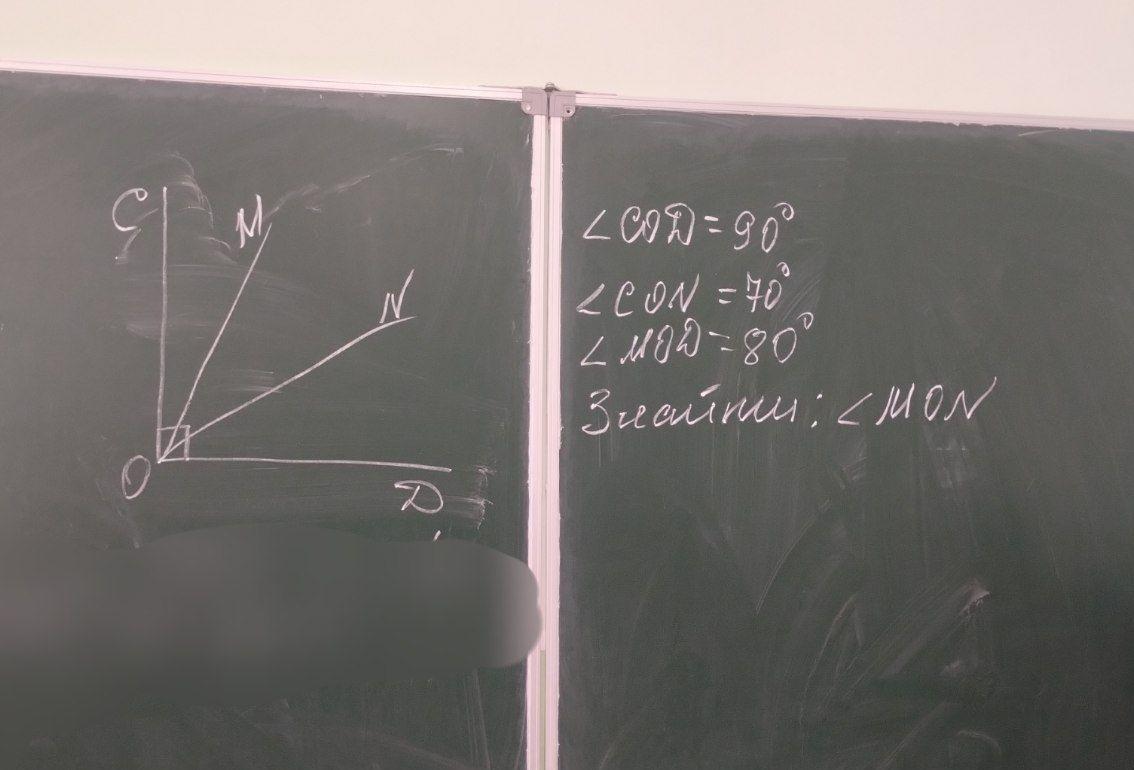 C
M
N
O
D
∠COD = 90°
∠CON = 70°
∠MOD = 80°
Знайти: ∠MON